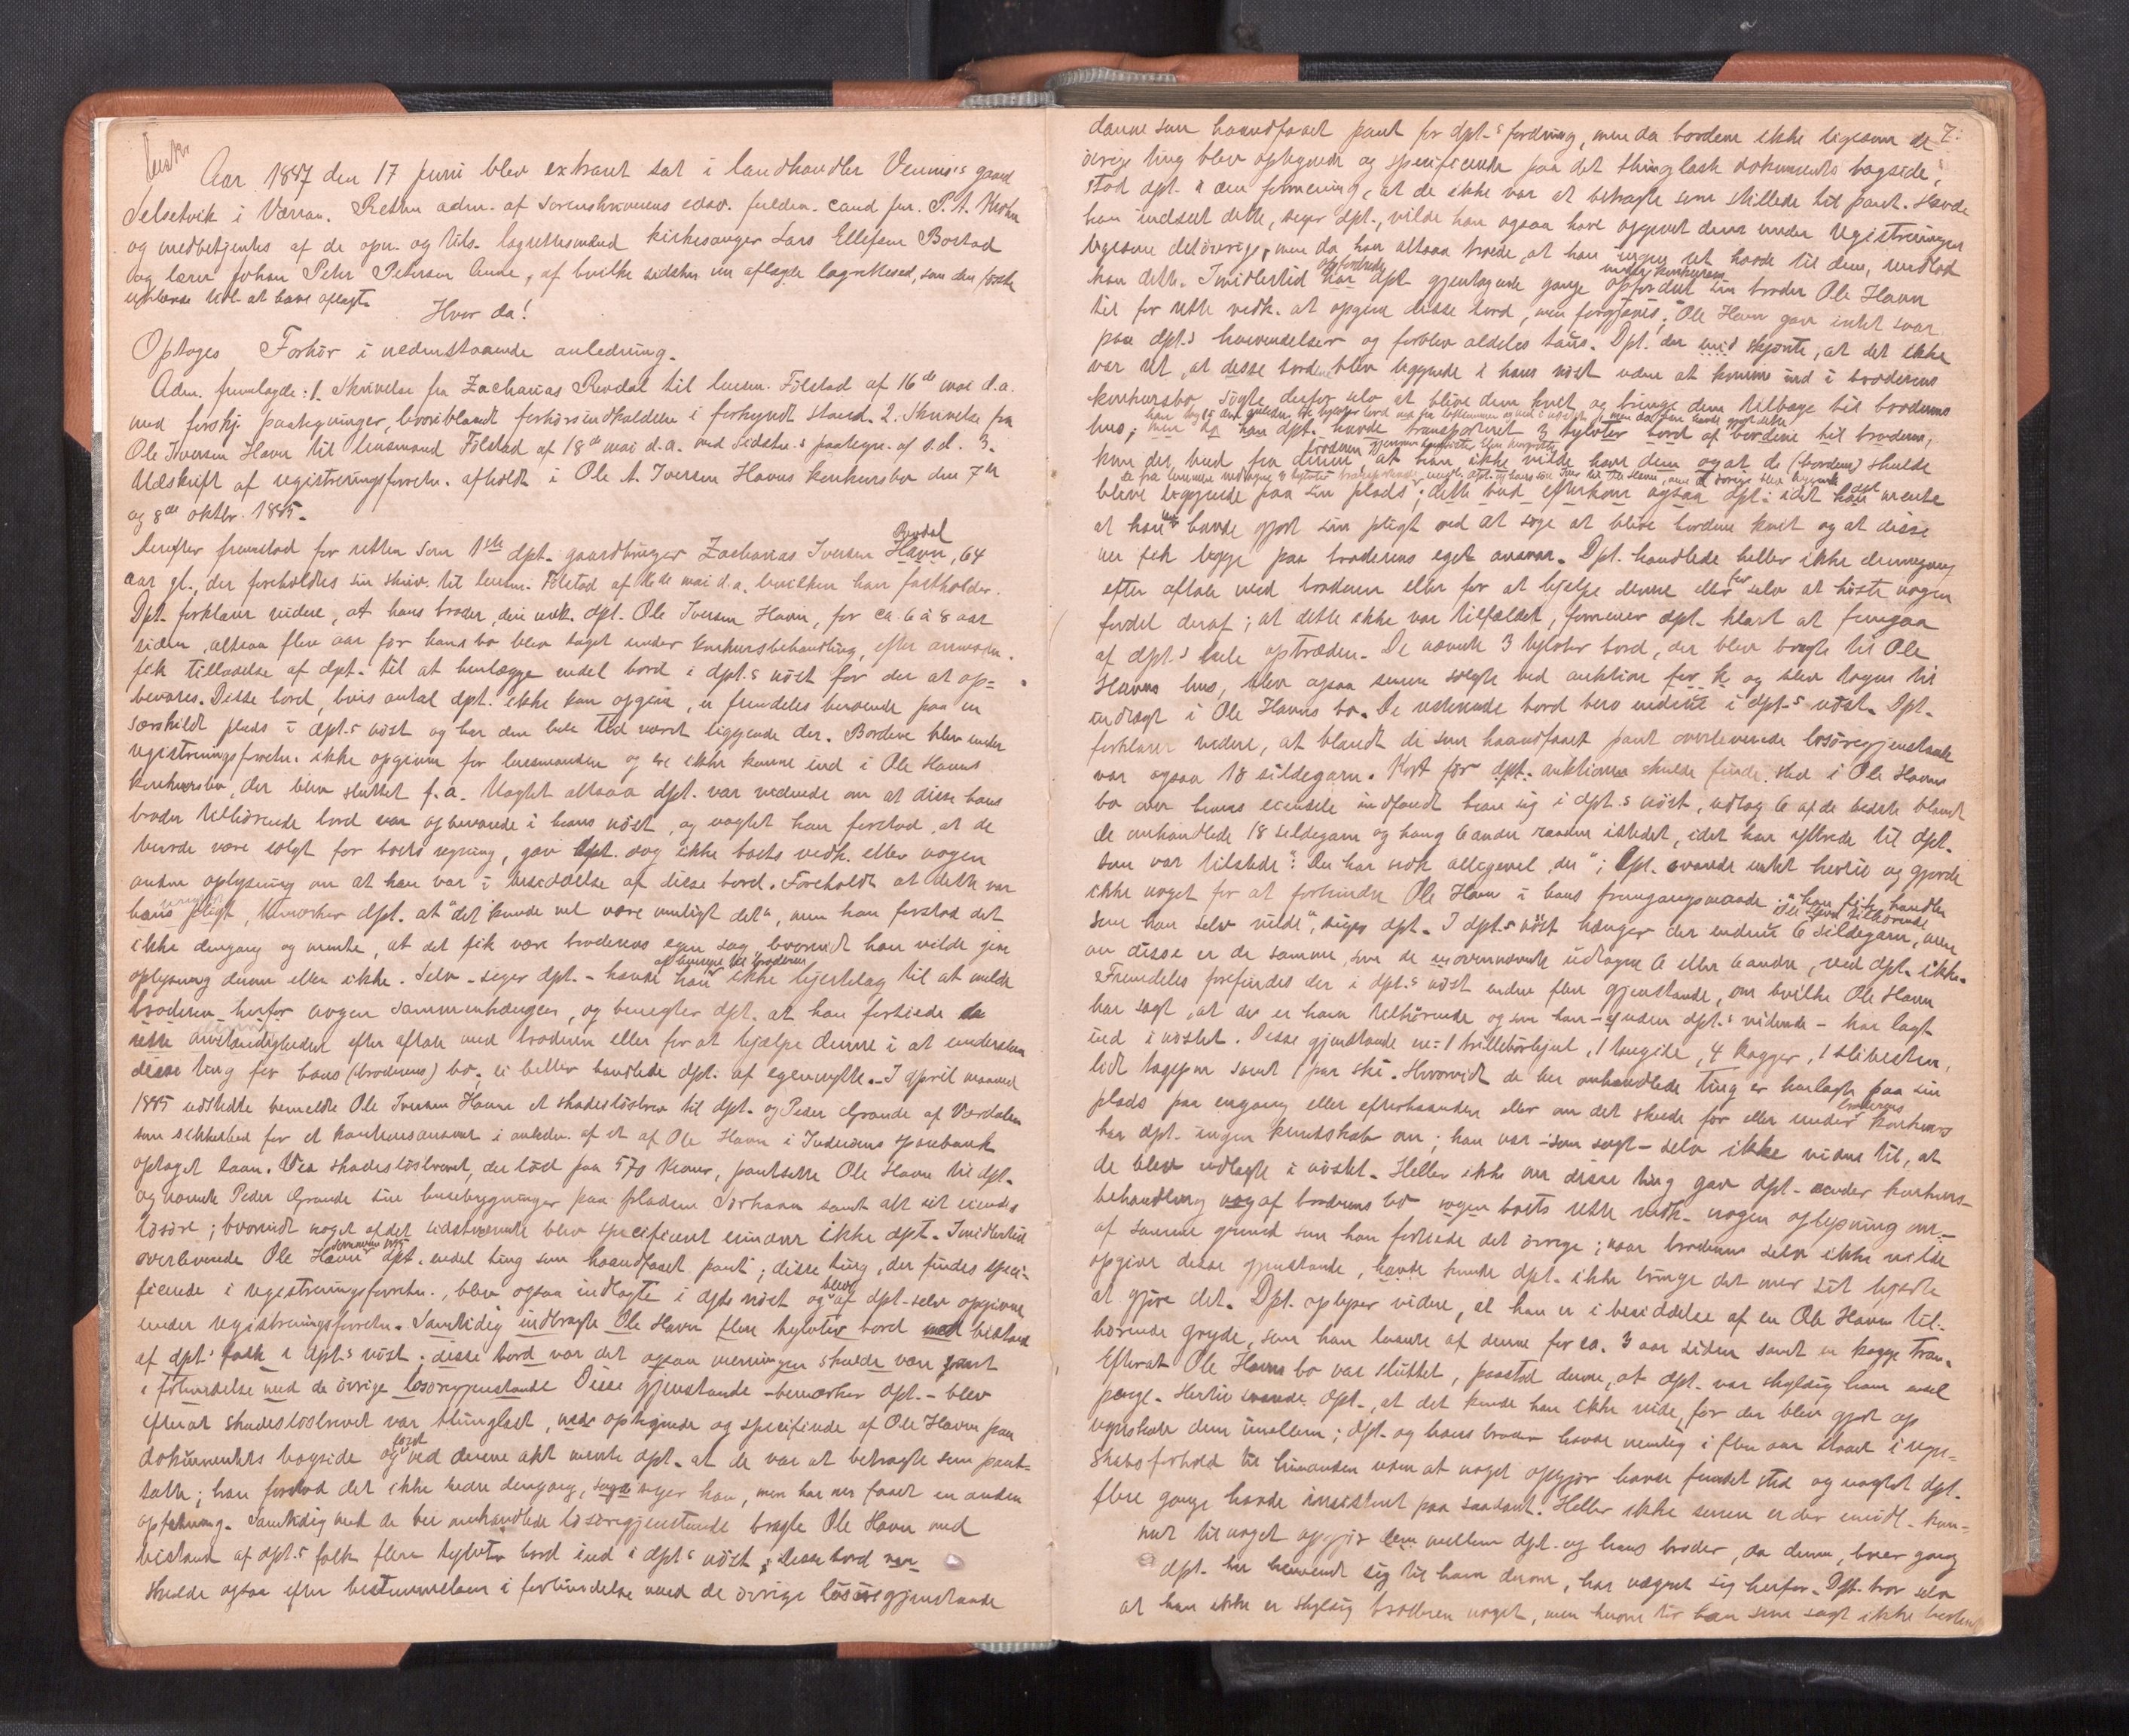 Aar 1887 den 17 juni blev extraret sat i landhandler Vennis's gaard
Selsetvik i Værran. Retten adm. af Sorenskriverens edsv. fuldm. cand jur. P. A.
og medbetjentes af de opn. og tils. lagrettesmænd kirkesanger Lars Ellefsen Bostad
og lærer Johan Peter Petersen Aune, af hvilke sidstn. nu aflagde lagretteed, som den første
erklærede tidl. at have aflagt.
Hvor da!
Optoges Forhör i nedenstaaende anledning.
Adm. fremlagde: 1. Skrivelse fra Zacharias Revdal til lensm. Fölstad af 16de mai d.a.
med forskj. paategninger, hvoriblandt forhörsindkaldelse i forkyndt stand. 2. Skrivelse fra
Ole Iversen Havn til lensmand Fölstad af 18de mai d.a. med Sidstn.s paategn. af s.d. 3.
Udskrift af registreringsforretn. afholdt i Ole A. Iversen Havns konkursbo den 7de
og 8de oktbr. 1885.
Derefter fremstod for retten som 1ste dpt. gaardbruger Zacharias Iversen Havn, Revdal 64
aar gl., der foreholdtes sin skriv. til lensm. Fölstad af 16de mai d.a. hvilken han fastholder.
Dpt. forklarer videre, at hans broder, den nævnte dpt. Ole Iversen Havn, for ca. 6 à 8 aar
siden, altsaa flere aar för hans bo blev taget under konkursbehandling, efter anmodn.
fik tilladelse af dpt. til at henlægge endel bord i dpt.s nöst for der at op=
bevares. Disse bord, hvis antal dpt. ikke kan opgive, er fremdeles beroende paa en
særskildt plads i dpt.s nöst og har den hele tid været liggende der. Bordene blev under
registreringsforretn. ikke opgivne for lensmanden og ere ikke komne ind i Ole Havns
konkursbo, der blev sluttet f.a. Uagtet altsaa dpt. var vidende om at disse hans
broder tilhörende bord var opbevarede i hans nöst, og uagtet han forstod, at de
burde være solgt for boets regning, gav dpt. dog ikke boets vedk. eller nogen
anden oplysning om at han var i besiddelse af disse bord. Foreholdt at dette var
hans pligt, bemærker dpt. at "det kunde vel være muligt det", men han forstod det
ikke dengang og mente, at det fik være broderens egen sag, hvorvidt han vilde give
oplysning derom eller ikke. Selv - siger dpt. - havde han ikke hjertelag til at melde
broderen herfor nogen sammenhængen, og benegter dpt. at han fortiede de
rette omstændigheder efter aftale med broderen eller for at hjælpe denne i at understikke
disse ting for hans (broderens) bo; ei heller handlede dpt. af egennytte. I april maaned
1885 udstedte bemeldte Ole Iversen Havn et skadeslösbrev til dpt. og Peder Grande af Værdalen
som sikkerhed for et kautionsansvar i anledn. af et af Ole Havn i Inderöens sparebank
optaget laan. Ved skadeslösbrevet, der löd paa 570 kroner, pantsatte Ole Havn til dpt.
og nævnte Peder Grande sine husebygninger paa pladsen Sörhavn samt alt sit eiende
lösöre; hvorvidt noget af det sidstnævnte blev specificeret erindrer ikke dpt. Imidlertid
overleverede Ole Havn sommeren 1885 dpt. endel ting som haandfaaet pant; disse ting, der findes speci-
ficerede i registreringsforretn., blev ogsaa indlagte i dpts nöst og blev af dpt. selv opgivne
under registreringsforretn. Samtidig indbragte Ole Havn flere tylvter bord med bistand
af dpt.s folk i dpt.s nöst; disse bord var det ogsaa meningen skulde være pant
i forbindelse med de övrige lösöregjenstande. Disse gjenstande - bemærker dpt. - blev
efterat skadeslösbrevet var thinglæst, optegnede og specificerede af Ole Havn paa
dokumentets bagside og först ved denne akt mente dpt. at de var at betragte som pant-
satte; han forstod det ikke bedre dengang, siger han, men har nu faaet en anden
opfatning. Samtidig med de her omhandlede lösöregjenstande bragte Ole Havn med
bistand af dpt.s folk flere tylvter bord ind i dpt.s nöst; disse bord
skulde ogsaa efter bestemmelsen i forbindelse med de övrige lösöregjenstande
7.
danne som haandfaaet pant for dpt.s fordring, men da bordene ikke ligesom de
övrige ting blev optegnede og specificerede paa det thinglæste dokuments bagside,
stod dpt. i den formening, at de ikke var at betragte som stillede til pant. Havde
han indseet dette, siger dpt., vilde han ogsaa have opgivet dem under registreringen
ligesom detövrige, men da han altsaa troede, at han ingen ret havde til dem, undlod
han dette. Imidlertid har dpt. gjentagende gange under konkursen opfordret sin broder Ole Havn
til for rette vedk. at opgive disse bord, men forgjæves; Ole Havn gav intet svar
paa dpt.s henvendelser og forblev aldeles taus. Dpt. der skjönte, at det ikke
var ret, at disse bord blev liggende i hans nöst uden at komme ind i broderens
konkursbo, sögte derfor selv at blive dem kvit og bringe dem tilbage til broderens
hus; men da han dpt. havde transporteret 3 tylvter bord af bordene til broderen,
kom der bud fra denne at han ikke vilde have dem og at de (bordene) skulde
blive liggende paa sin plads; dette bud efterkom ogsaa dpt. idet han mente
at han havde gjort sin pligt ved at söge at blive bordene kvit og at disse
nu fik ligge paa broderens eget ansvar. Dpt. handlede heller ikke dennegang
efter aftale med broderen eller for at hjelpe denne eller for selv at höste nogen
fordel deraf; at dette ikke var tilfældet, formener dpt. klart at fremgaa
af dpt.s hele optræden. De nævnte 3 tylvter bord, der blev bragte til Ole
Havns hus, blev ogsaa senere solgte ved auktion og blev tagen til
indtægt i Ole Havns bo. De resterende bord bero endnu i dpt.s nöst. Dpt.
forklarer videre, at blandt de som haandfaaet pant overleverede lösöregjenstande
var ogsaa 18 sildegarn. Kort för dpt. auktionen skulde finde sted i Ole Havns
bo over hans eiendele indfandt han sig i dpt.s nöst, udtog 6 af de bedste blandt
de omhandlede 18 sildegarn og hang 6 andre raadne istedet, idet han ytrede til dpt.
som var tilstede: "Du har nok alligevel, du"; dpt. svarede intet hertil og gjorde
ikke noget for at forhindre Ole Havn i hans fremgangsmaade; "han fik handle
som han selv vilde", siger dpt. I dpt.s nöst hænger der endnu 6 Ole Havn tilhörende sildegarn, men
om disse er de samme, som de ovennævnte udtagne 6 eller 6 andre, ved dpt. ikke.
Fremdeles forefindes der i dpt.s nöst endnu flere gjenstande, om hvilke Ole Havn
har sagt, at de er ham tilhörende og som han - uden dpt.s vidende - har lagt
ind i nöstet. Disse gjenstande er: 1 trillebörhjul, 1 tougile, 4 kagger, 1 slibesten,
lidt tagspon samt 1 par ski. Hvorvidt de her omhandlede ting er henlagte paa sin
plads paa engang eller efterhaanden eller om det skede för eller under broderens konkurs
har dpt. ingen kundskab om; han var - som sagt - selv ikke vidne til, at
de blev indlagte i nöstet. Heller ikke om disse ting gav dpt. under konkurs-
behandling af broderens bo boets rette vedk. nogen oplysning om.-
af samme grund som han fortiede det övrige; naar broderen selv ikke vilde
opgive disse gjenstande, kunde dpt. ikke bringe det over sit hjerte
at gjöre det. Dpt. oplyser videre, at han er i besiddelse af en Ole Havn til-
hörende gryde, som han laante af denne for ca. 3 aar siden samt en kagge tran.
Efterat Ole Havns bo var sluttet, paastod denne, at dpt. var skyldig ham endel
penge. Hertil svarede dpt., at det kunde han ikke vide, för der blev gjort op
regnskab dem imellem; dpt. og hans broder havde nemlig i flere aar staaet i regn-
skabsforhold til hinanden uden at noget opgjör havde fundet sted og uagtet dpt.
flere gange havde insisteret paa saadant. Heller ikke senere er der imidl. kom-
met til noget opgjör mellem dpt. og hans broder, da denne, hver gang
dpt. har henvendt sig til ham derom, har vægret sig herfor. Dpt. tror selv
at han ikke er skyldig broderen noget, men herom tör han som sagt ikke bestemt